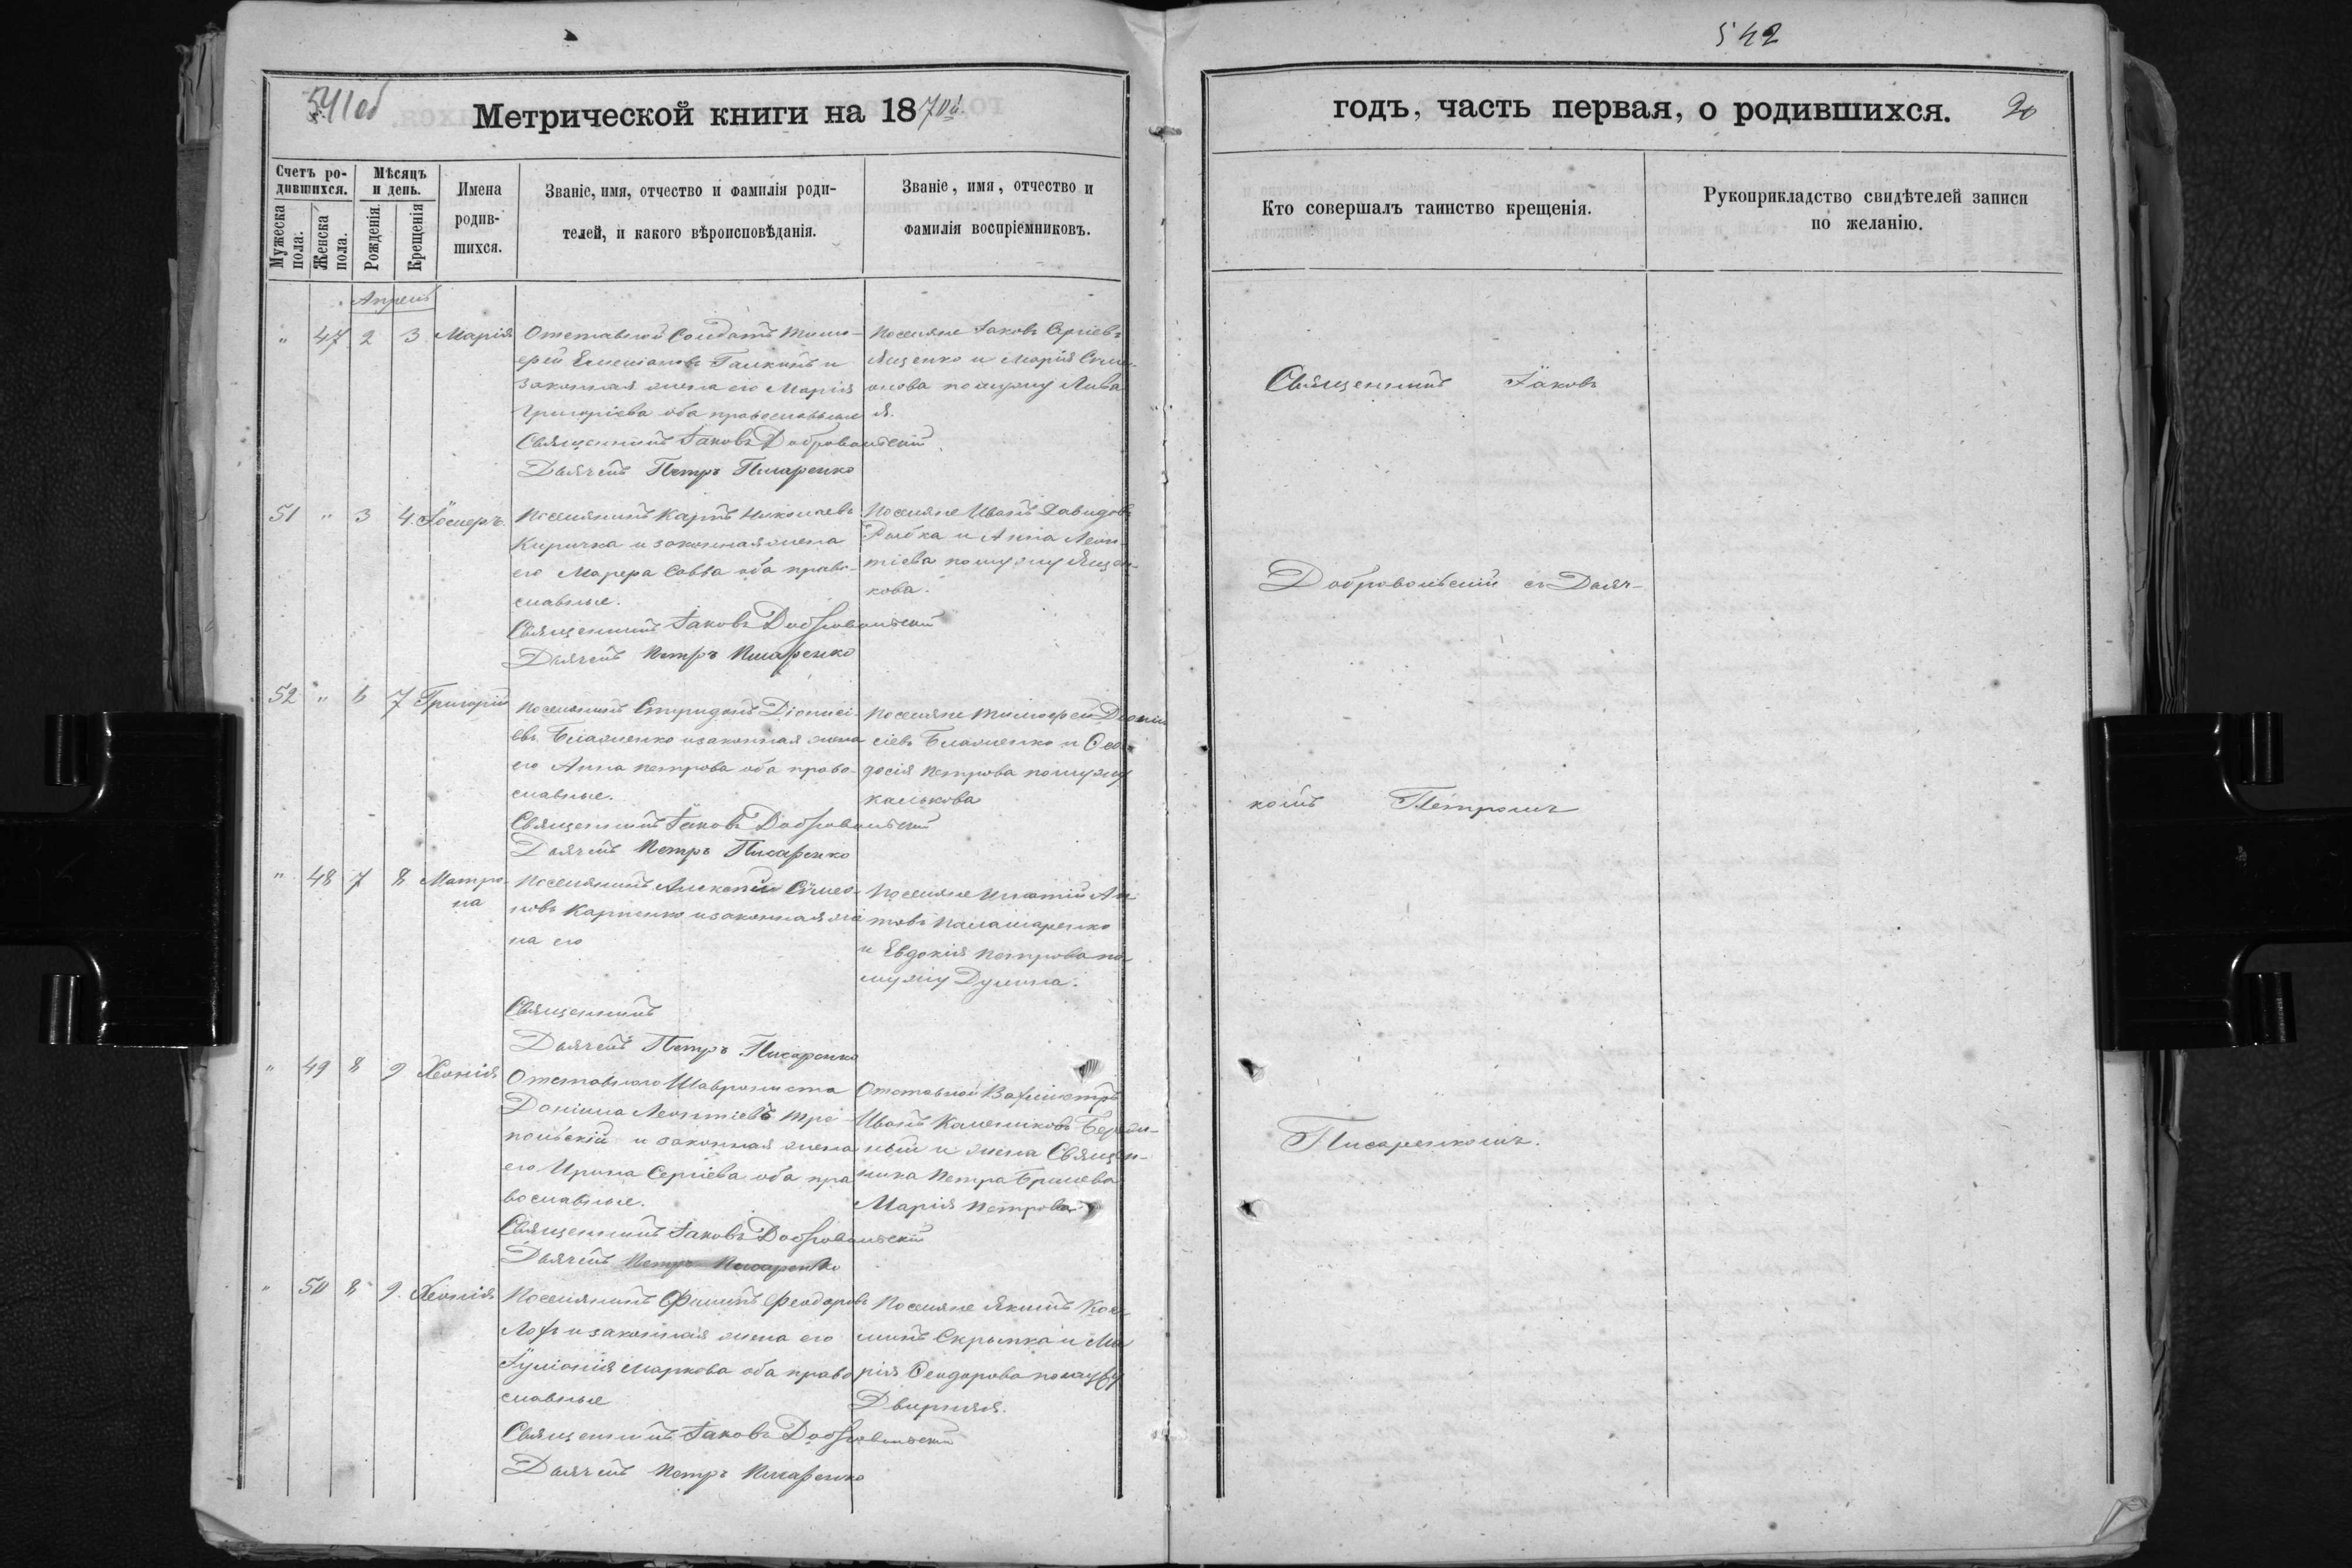 541об
Метрической книги на 1870й
Счетъ ро-
дившихся.
Мужеска
пола.
Женска
пола.
Мѣсяцъ
и день.
Рожденія.
Крещенія
Имена
родив-
шихся.
Званіе, имя, отчество и фамилія роди-
телей, и какого вѣроисповѣданія.
Званіе, имя, отчество и
фамилія воспріемниковъ.
Апрель
" 47 2 3 Марія
Отставной Солдатъ Тимо-
фей Емеліановъ Галкинъ и
законная жена его Марія
Григоріева оба православные
Священникъ Іаковъ Добровольскій
Дьячекъ Петръ Писаренко
Поселяне Іаковъ Сергіевъ
Яценко и Марія Симе-
онова по мужу
я.
51 " 3 4. Іосифъ.
Поселянинъ Карпъ Николаевъ
Киричка и законная жена
его Савва оба право-
славные.
Священникъ Іаковъ Добровольскій
Дьячекъ Петръ Писаренко
Поселяне Иванъ Давидовъ
Рыбка и Анна Леон-
тіева по мужу Яцен-
кова.
52 " 6 7 Григорій
Поселянинъ Спиридонъ Діонисі-
евъ Блаженко и законная жена
его Анна Петрова оба право-
славные.
Священникъ Іаковъ Добровольскій
Дьячекъ Петръ Писаренко
Поселяне Тимофей Діони
сіевъ Блаженко и Ѳео-
досія Петрова по мужу
калькова
" 48 7 8 Матро-
на
Поселянинъ Алексій Сѵмео-
новъ Карпенко и законная же
на его
Священникъ
Дьячекъ Петръ Писаренко
Поселяне Игнатій Ан
товъ Паламаренко
и Евдокія Петрова по
мужу Думина.
" 49 8 9 Хіонія
Отставного
Даніила Леонтіевъ Тре-
польскій и законная жена
его Ирина Сергіева оба пра
вославные.
Священникъ Іаковъ Добровольскій
Дьячекъ Петръ Писаренко
Отставной Вахмистръ
Иванъ
ный и жена Священ-
ника Петра
Марія Петрова
" 50 8 9. Хіонія
Поселянинъ Филипъ Феодоровъ
и законная жена его
Іуліанія Маркова оба право
славные
Священникъ Іаковъ Добровольскій
Дьячекъ Петръ Писаренко
Поселяне Якимъ Кос
минъ Скрыпка и Ма
рія Ѳеодорова по мужу
Двирняя.
542
годъ, часть первая, о родившихся. 20
Кто совершалъ таинство крещенія.
Рукоприкладство свидѣтелей записи
по желанію.
Священникъ Іаковъ
Добровольскій съ Дьяч-
комъ Петромъ
Писаренкомъ.